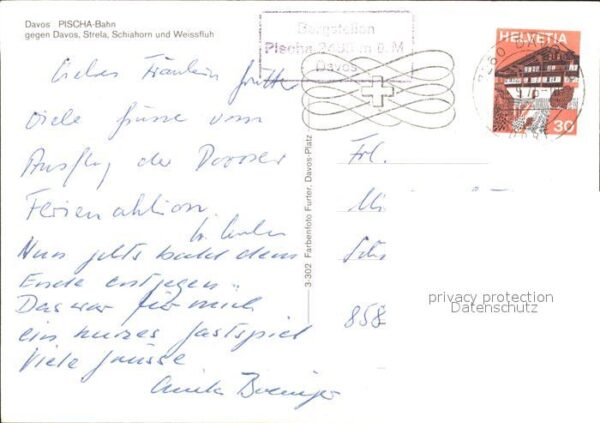 Davos PISCHA-Bahn
gegen Davos, Strela, Schiahorn und Weissfluh
Bergstation
Pischa 2483 m ü. M
Davos
HELVETIA
30
Liebes Fräulein
viele Grüsse vom
Ausflug der Davoser
Ferienaktion.
Nun gehts bald dem
Ende entgegen.
Das war für mich
ein kurzes Gastspiel
Viele Grüsse
3-302 Farbenfoto Furter, Davos-Platz
Frl.
858
privacy protection
Datenschutz